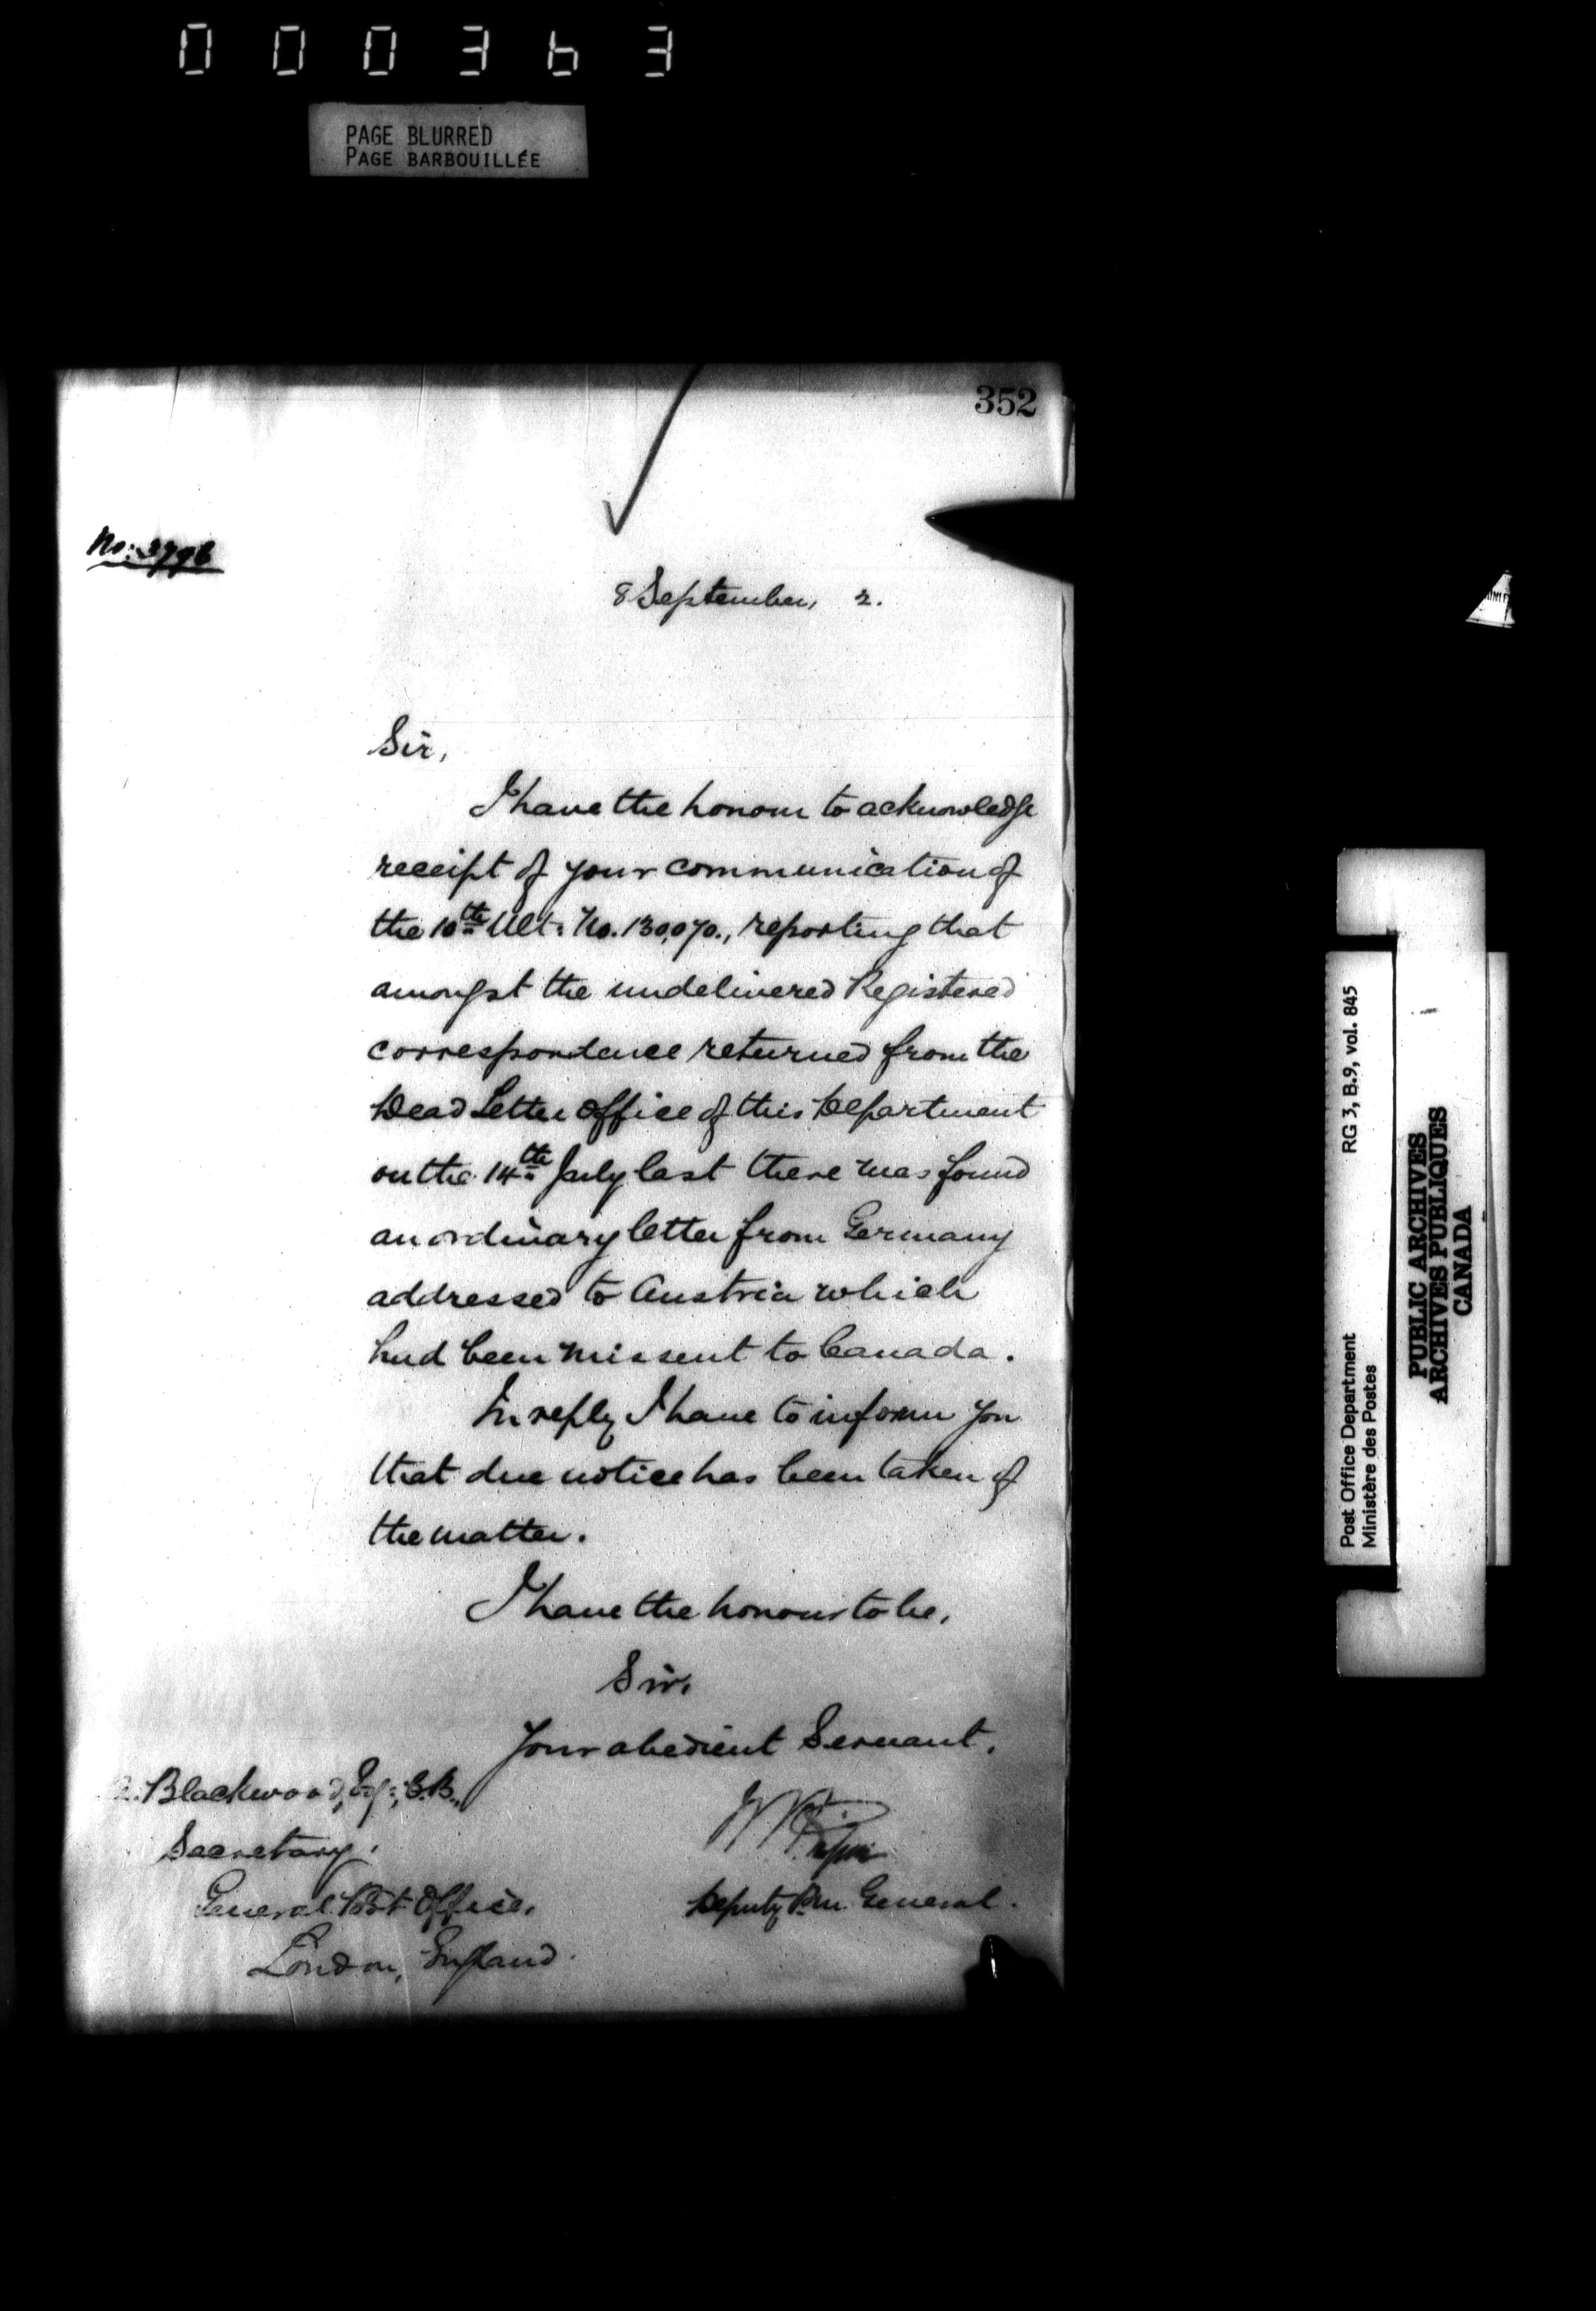 000363
PAGE BLURRED
PAGE BARBOUILLÉE
352
No: 3796
8 September, 2.
Sir,
I have the honour to acknowledge
receipt of your communication of
the 10th Ult: No. 130,070., reporting that
amongst the undelivered Registered
correspondence returned from the
Dead Letter Office of this Department
on the 14th July last there was found
an ordinary letter from Germany
addressed to Austria which
had been missent to Canada.
In reply I have to inform you
that due notice has been taken of
the matter.
I have the honour to be,
Sir,
Your obedient Servant,
Blackwood, Esq:, C.B.,
Secretary,
General Post Office,
Deputy P.M. General.
London, England.
Post Office Department
Ministère des Postes
RG 3, B.9, vol. 845
PUBLIC ARCHIVES
ARCHIVES PUBLIQUES
CANADA